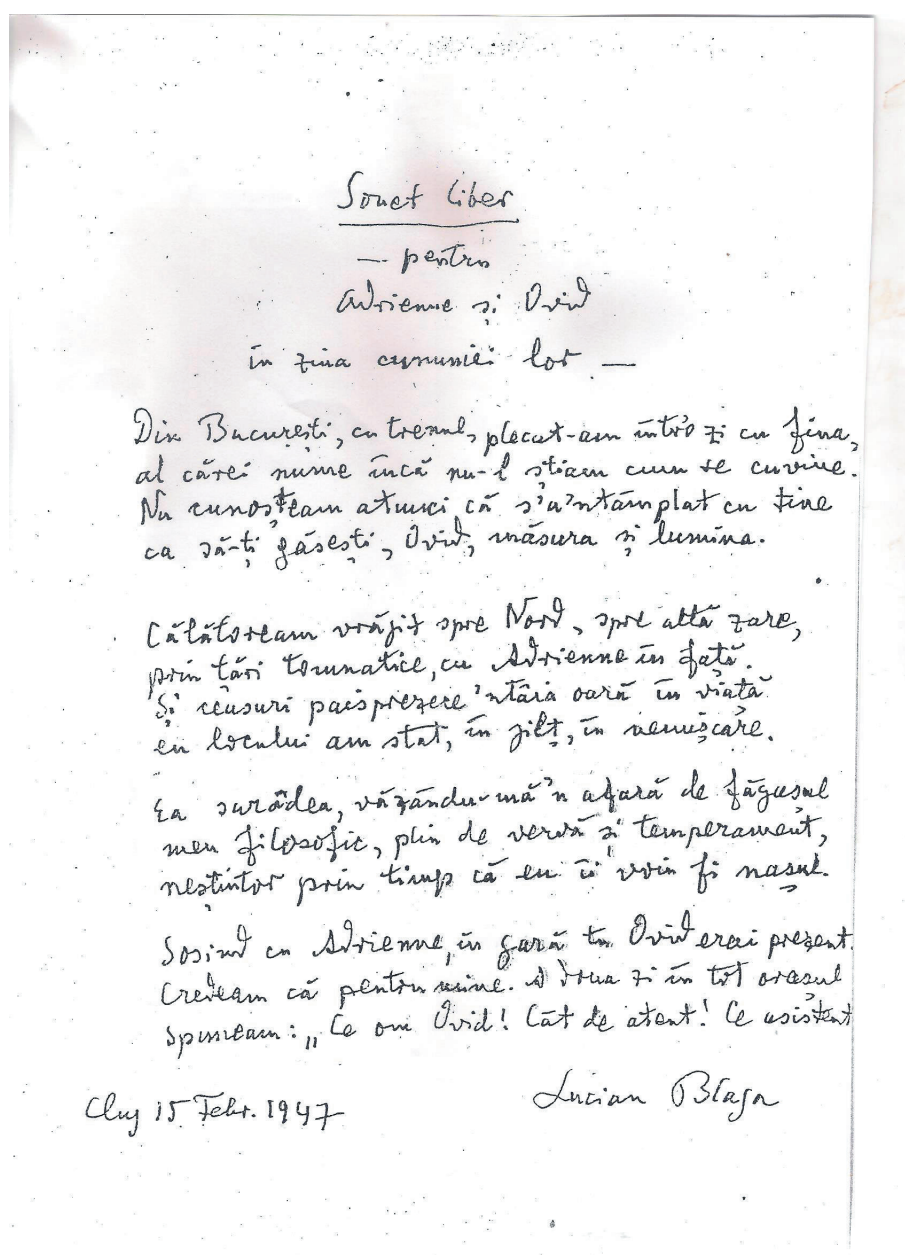 Sonet liber
— pentru
Adrienne și Ovid
în ziua cununiei lor —
Din București, cu trenul, plecat-am într'o zi cu fina,
al cărei nume încă nu-l știam cum se cuvine.
Nu cunoșteam atunci că s'a'ntâmplat cu tine
ca să-ți găsești, Ovid, măsura și lumina.
Călătoream vrăjit spre Nord, spre altă zare,
prin țări tomnatice, cu Adrienne în față.
Și ceasuri paisprezece 'ntâia oară în viață
eu locului am stat, în jilț, în nemișcare.
Ea surâdea, văzându-mă 'n afară de făgașul
meu filosofic, plin de vervă și temperament,
neștiutor prin timp că eu îi voiu fi nașul.
Sosind cu Adrienne, în gară tu Ovid erai prezent.
Credeam că pentru mine. A doua zi în tot orașul
spuneam: „Ce om Ovid! Cât de atent! Ce asistent
Cluj 15 Febr. 1947
Lucian Blaga